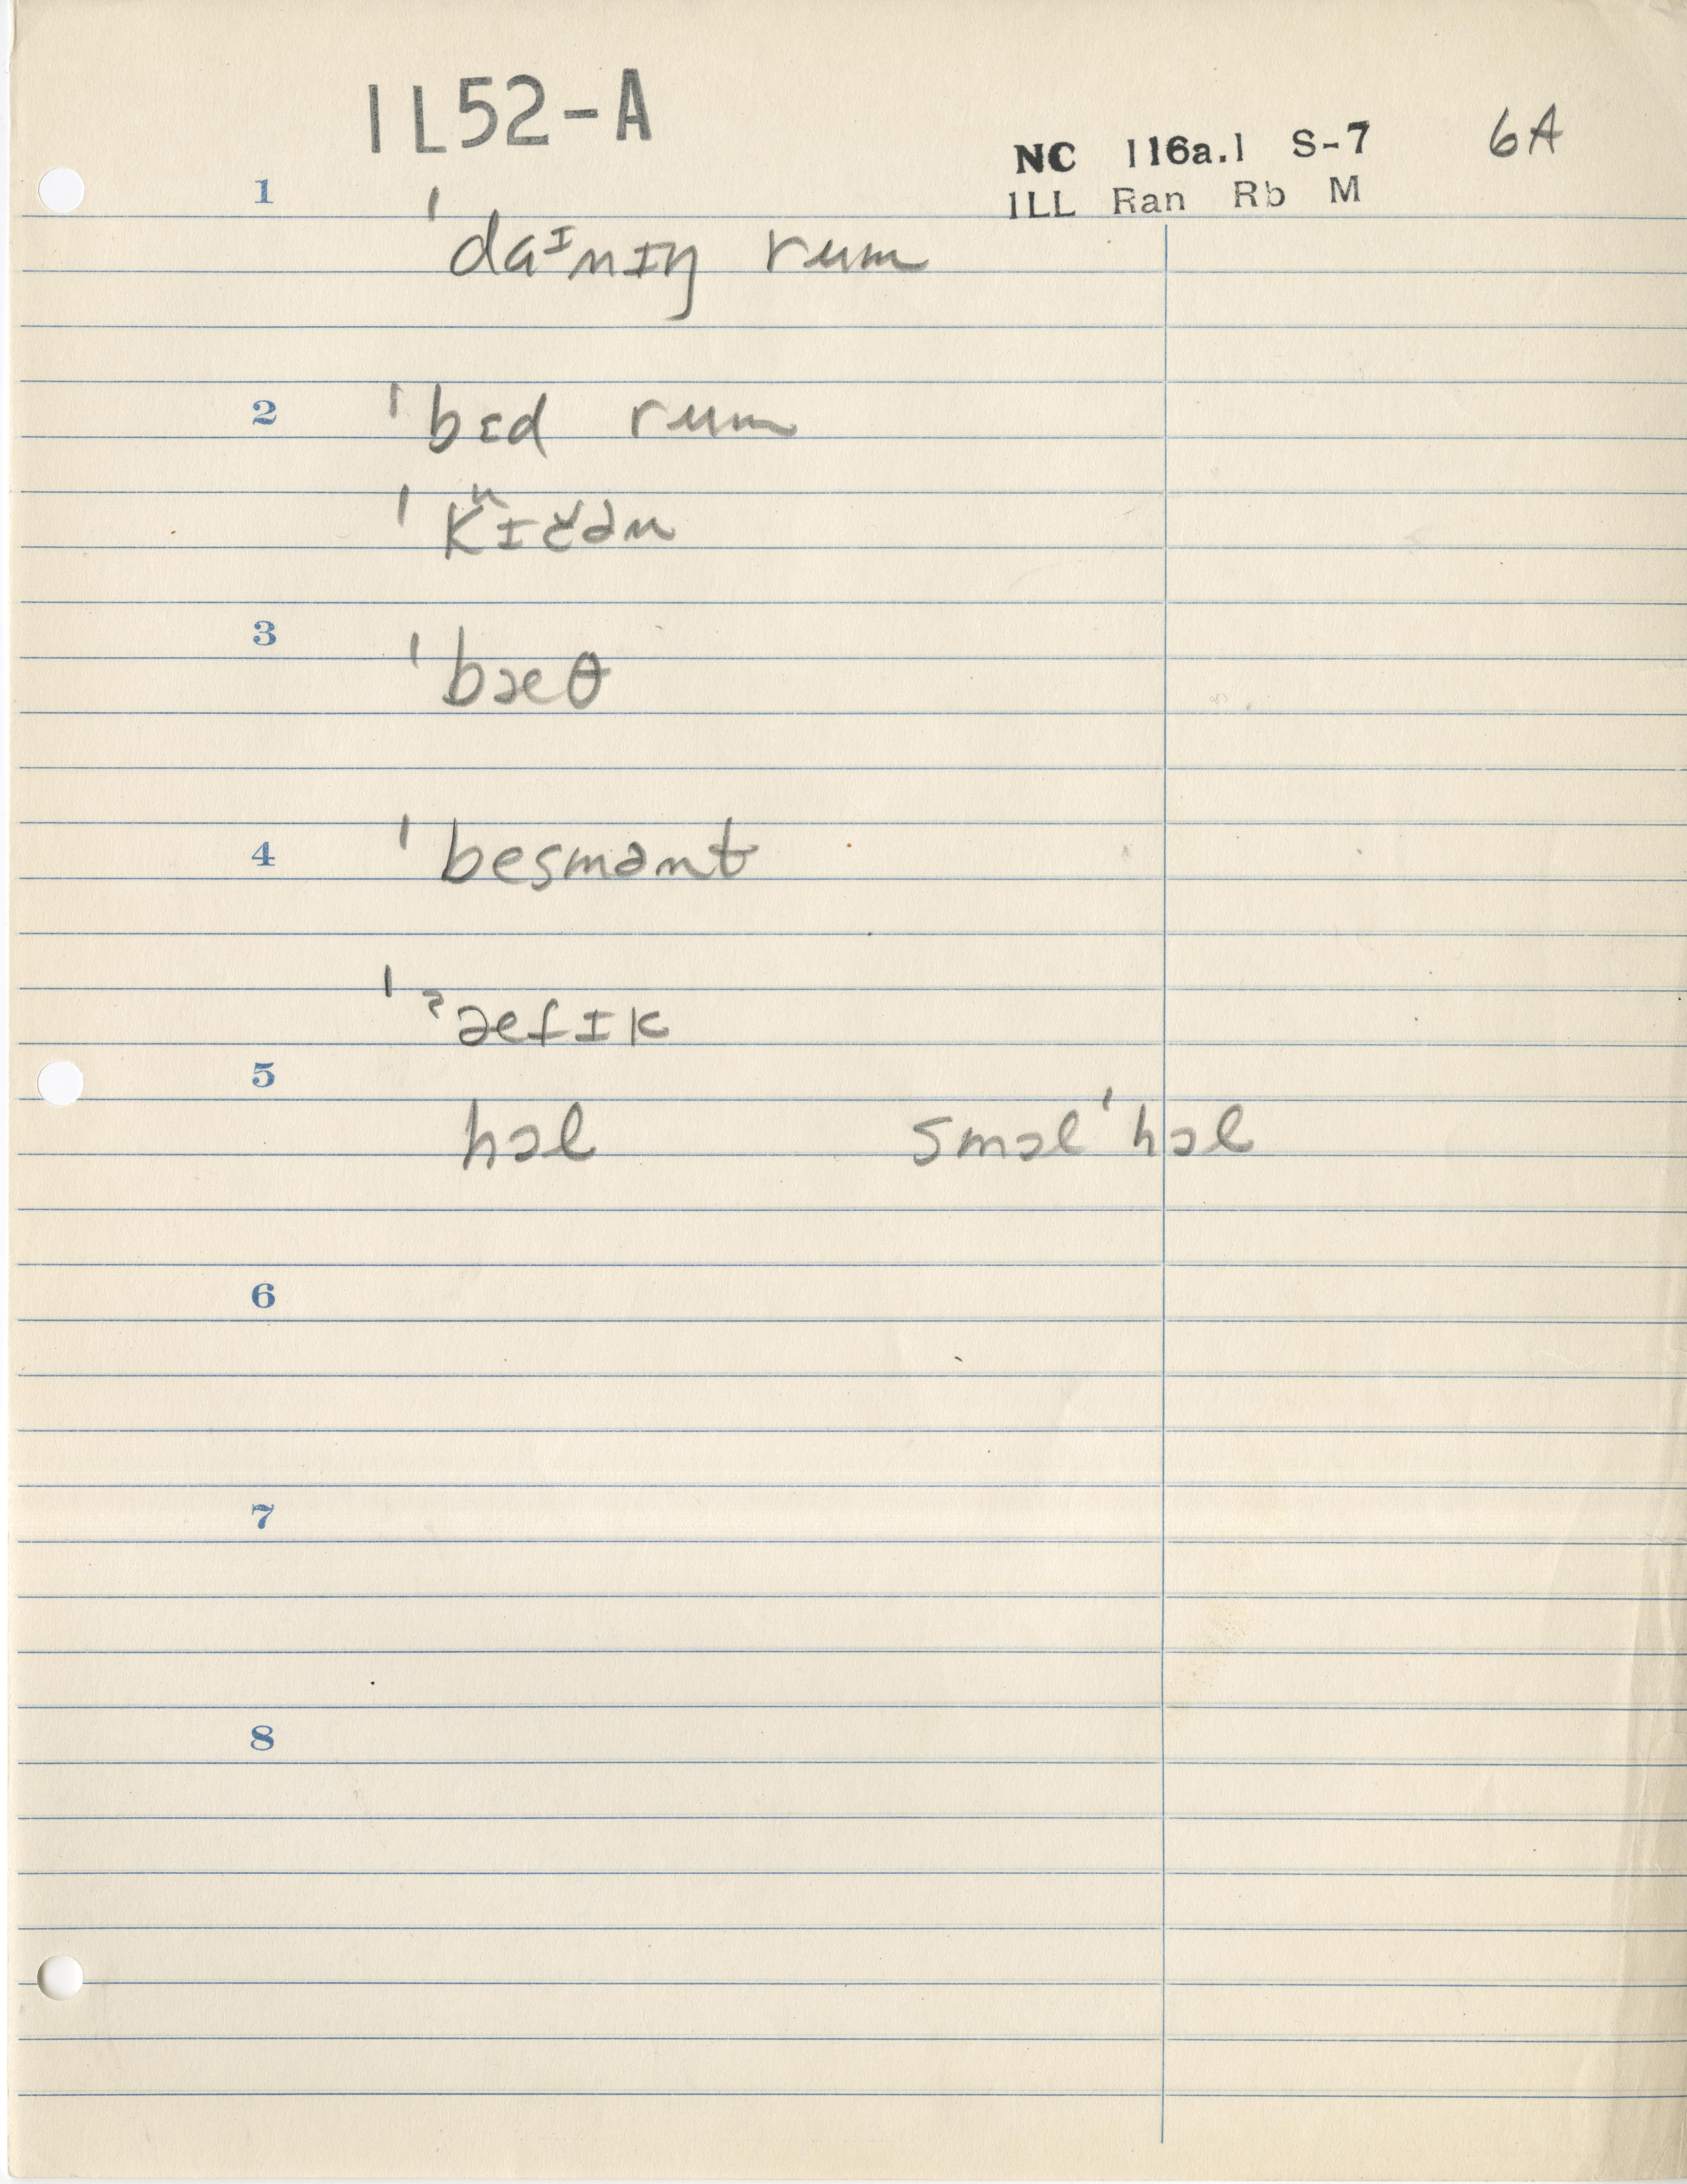 IL52-A
NC 116a.1 S-7 6A
ILL Ran Rb M
1
ˈdaᶦnɪŋ rum
2 ˈbɛd rum
ˈkʰɪčən
3
ˈbæθ
4 ˈbesmənt
ˈˀæfɪk
5
hɔl smɔlˈhɔl
6
7
8